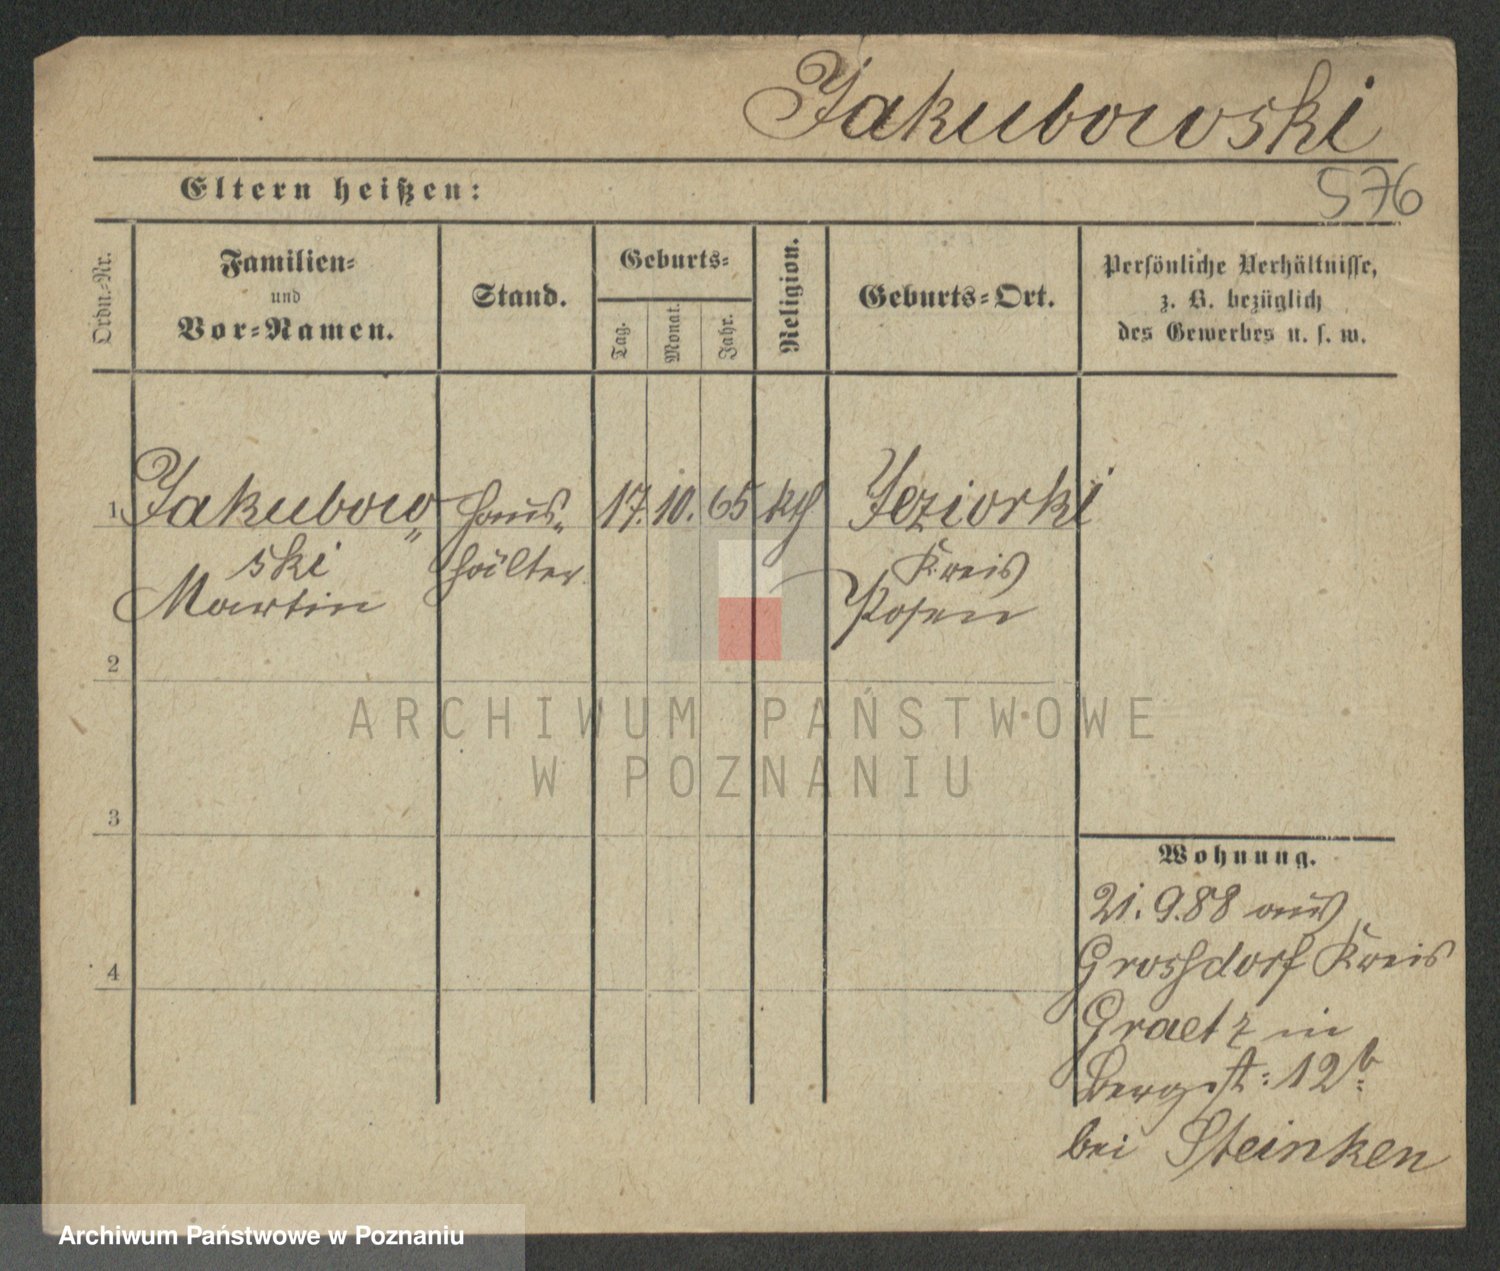 Jakubowski
Eltern heißen:
576
Ordn.-Nr.
Familien-
und
Vor-Namen.
Stand.
Geburts-
Tag.
Monat.
Jahr.
Religion.
Geburts-Ort.
Persönliche Verhältnisse,
z. B. bezüglich
des Gewerbes u. s. w.
1
Jakubow„
ski
Martin
Haus„
hälter
17.
10.
65
kth
Jeziorki
Kreis
Posen
2
ARCHIWUM PAŃSTWOWE
W POZNANIU
3
4
Wohnung.
21.9.88 aus
Grossdorf Kreis
Graetz in
Bergst: 12b
bei Steinken
Archiwum Państwowe w Poznaniu